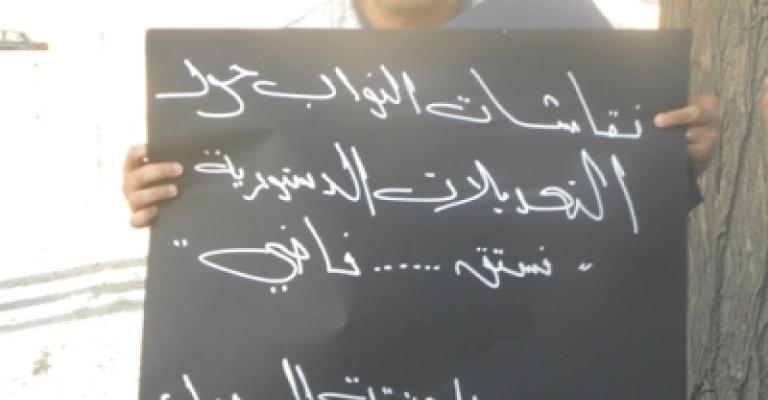 نقاشات النواب حول
التعديلات الدستورية
"فستق ...... فاضي"